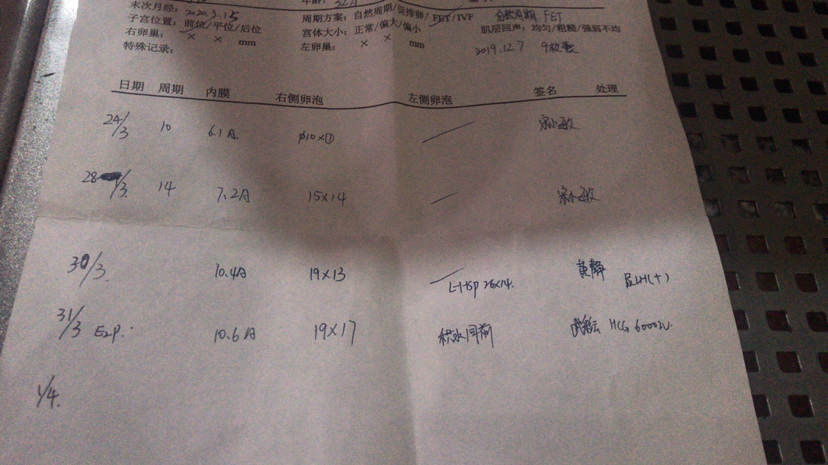 末次月经: 2020.3.15
子宫位置: 前位/平位/后位 周期方案: 自然周期/促排卵/FET/IVF FET
右卵巢: × × mm 宫体大小: 正常/偏大/偏小 肌层回声: 均匀/粗糙/强弱不均
特殊记录: 左卵巢: × × mm 2019.12.7 9枚囊
日期 周期 内膜 右侧卵泡 左侧卵泡 签名 处理
24/3 10 6.1A φ10×① 宋小敏
28/3 14 7.2A 15×14 宋小敏
30/3 10.4A 19×13 L-Hsp 26×14 黄静 尿LH(+)
31/3 E2P 10.6A 19×17 积水同前 HCG 6000IU
1/4